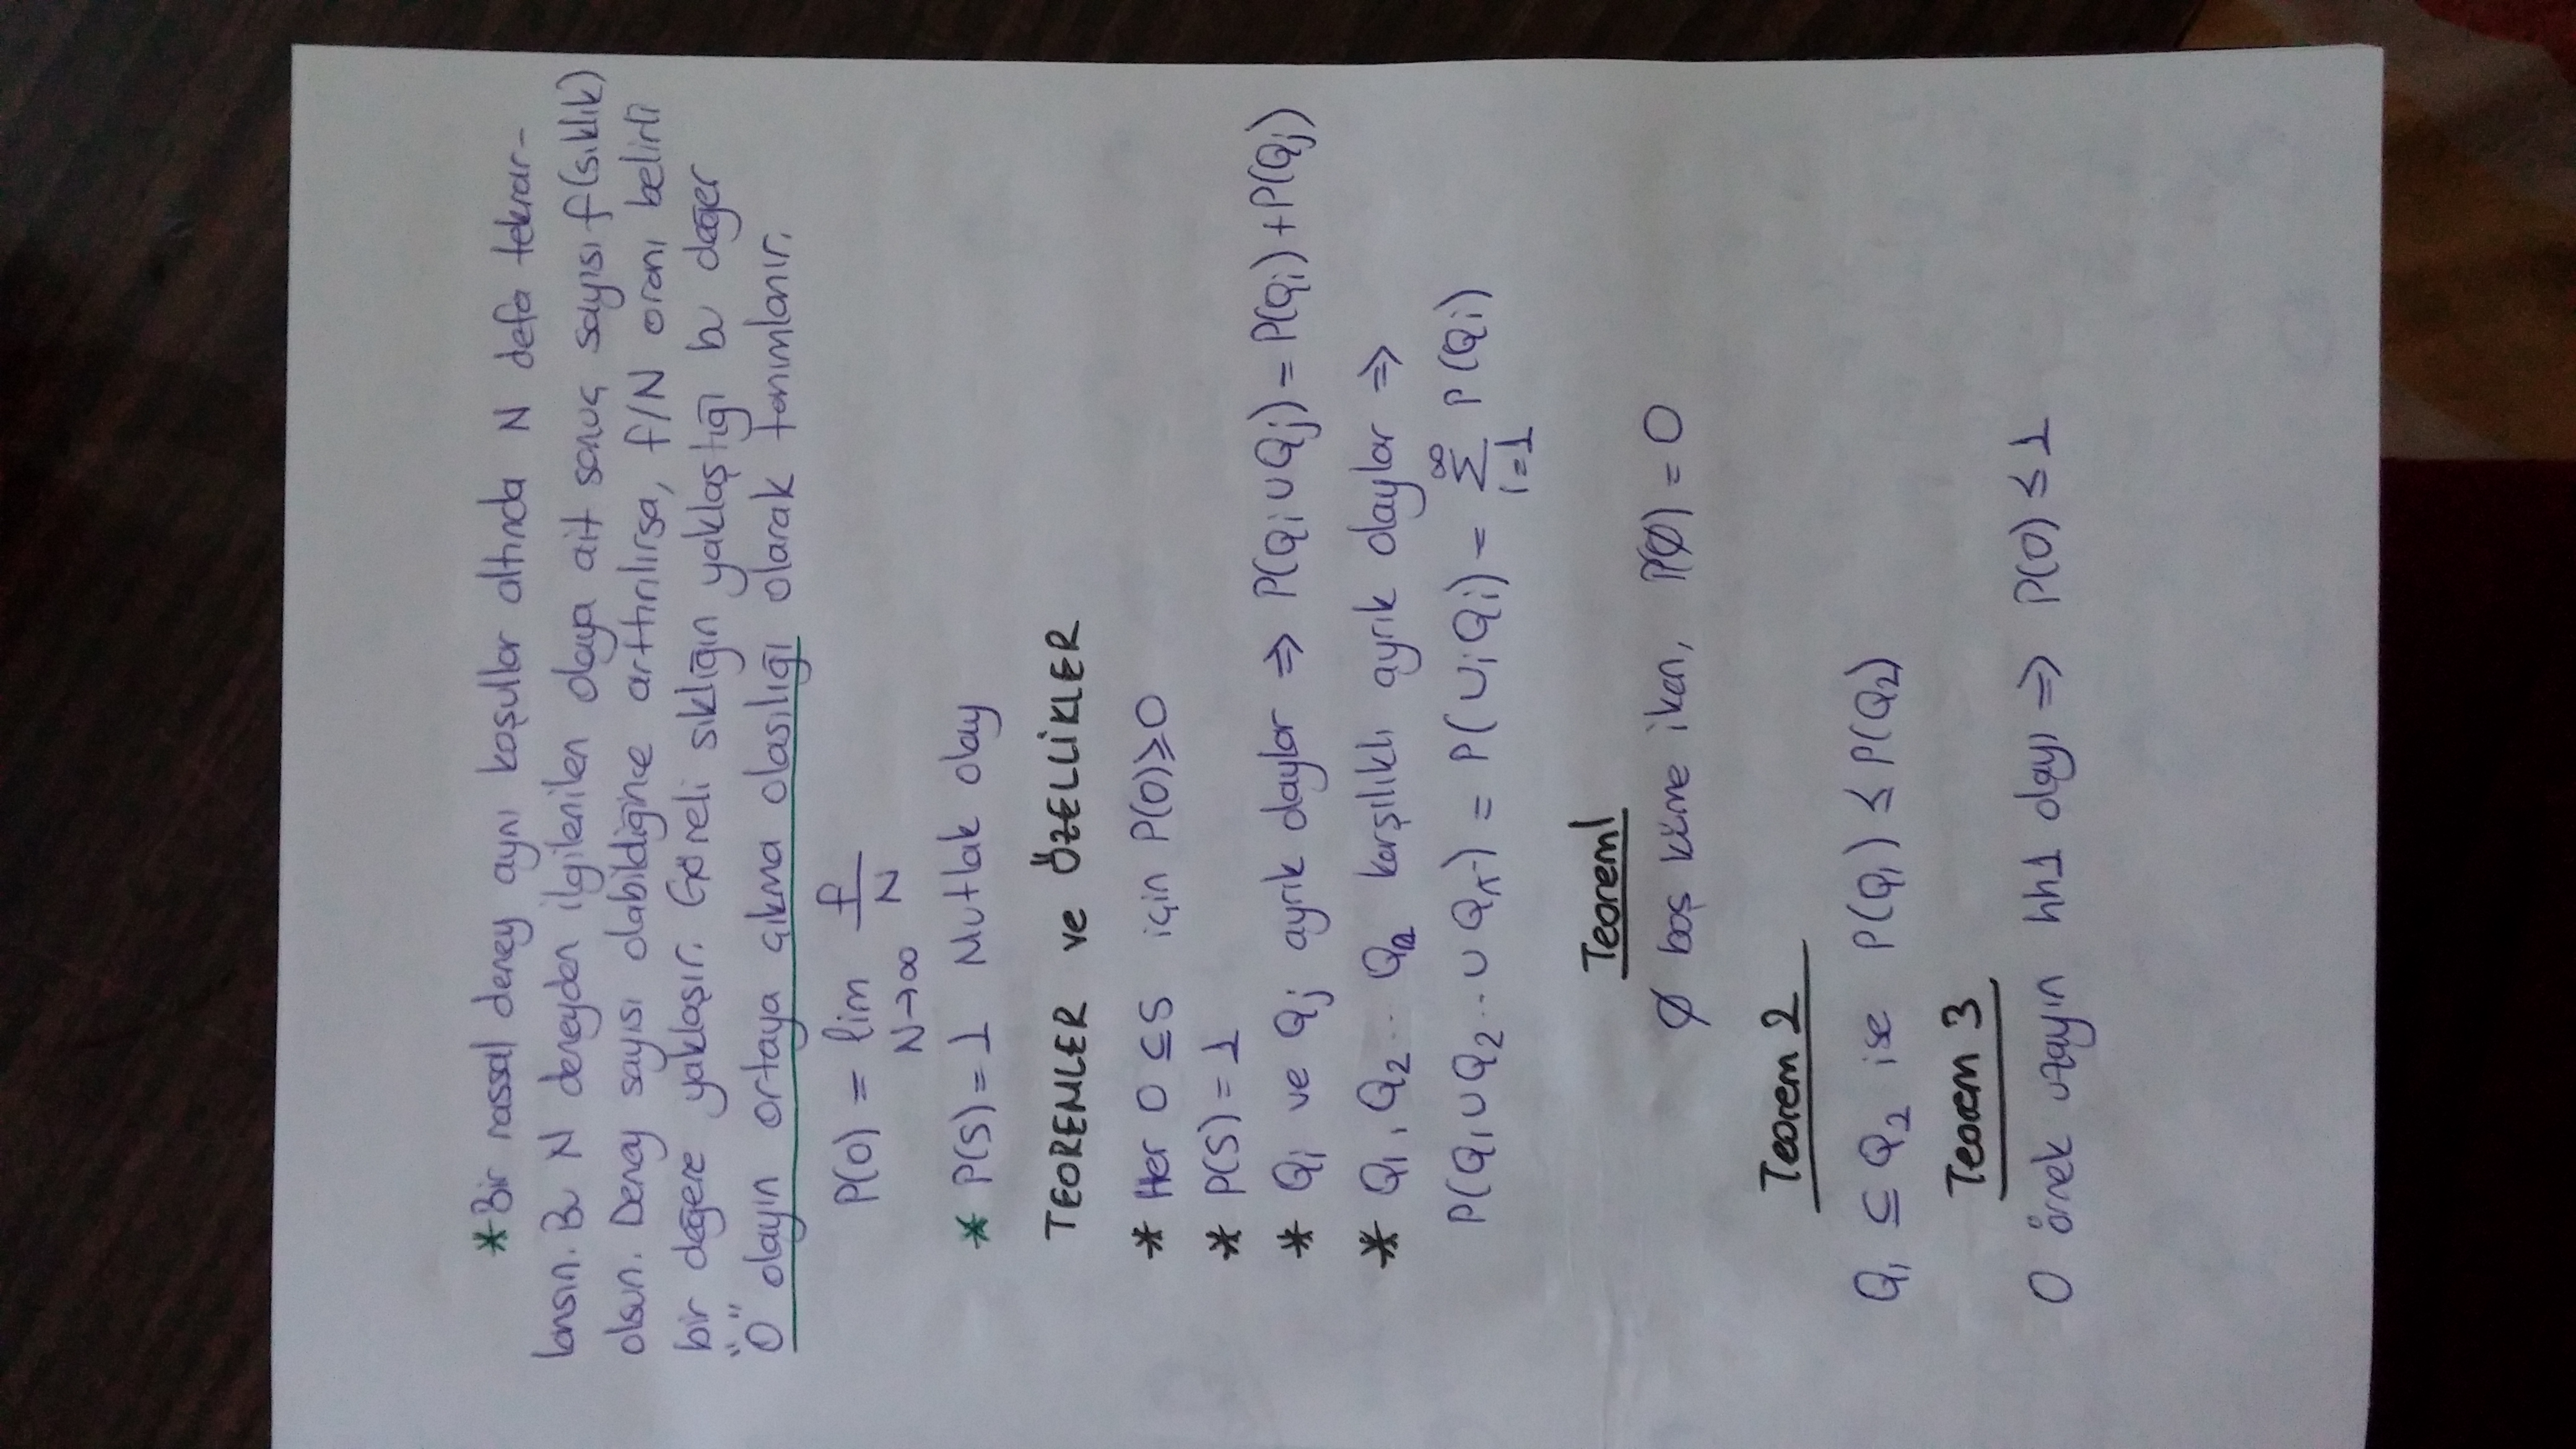 *Bir rassal deney aynı koşullar altında N defa tekrar-
lansın. Bu N deneyden ilgilenilen olaya ait sonuç sayısı f(sıklık)
olsun. Deney sayısı olabildiğince arttırılırsa, f/N oranı belirli
bir değere yaklaşır. Göreli sıklığın yaklaştığı bu değer
"O" olayın ortaya çıkma olasılığı olarak tanımlanır.
P(O) = lim f/N
N→∞
* P(S) = 1 Mutlak olay
TEOREMLER ve ÖZELLİKLER
* Her O ⊆ S için P(O) ⩾ 0
* P(S) = 1
* Qi ve Qj ayrık olaylar ⇒ P(Qi ∪ Qj) = P(Qi) + P(Qj)
* Q1, Q2.. Qn karşılıklı ayrık olaylar ⇒
P(Q1 ∪ Q2.. ∪ Qn) = P(∪i Qi) = ∞ Σ i=1 P(Qi)
Teorem1
∅ boş küme iken, P(∅) = 0
Teorem 2
Q1 ⊆ Q2 ise P(Q1) ≤ P(Q2)
Teorem 3
O örnek uzayın hh1 olayı ⇒ P(O) ≤ 1